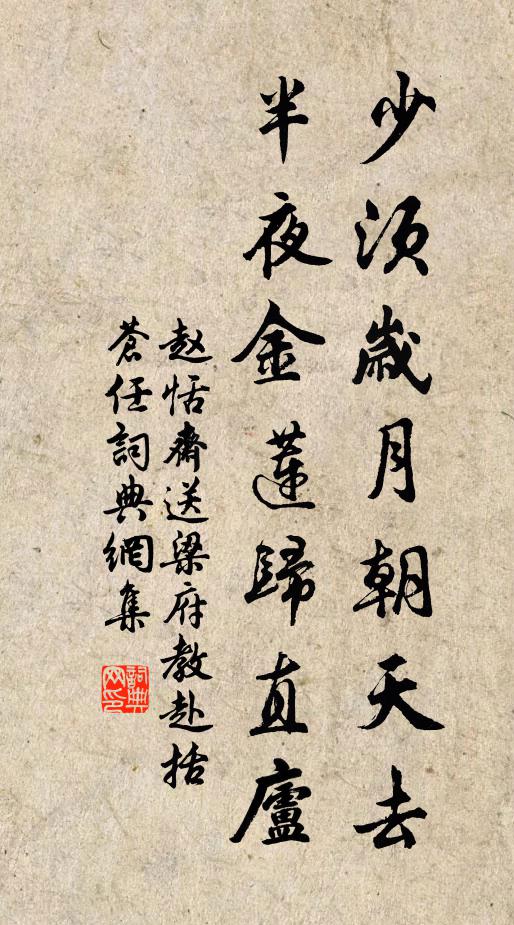 少須歲月朝天去
半夜金蓮歸直廬
赵恬齋送梁府教赴括
蒼任詞典網集
詞典網印